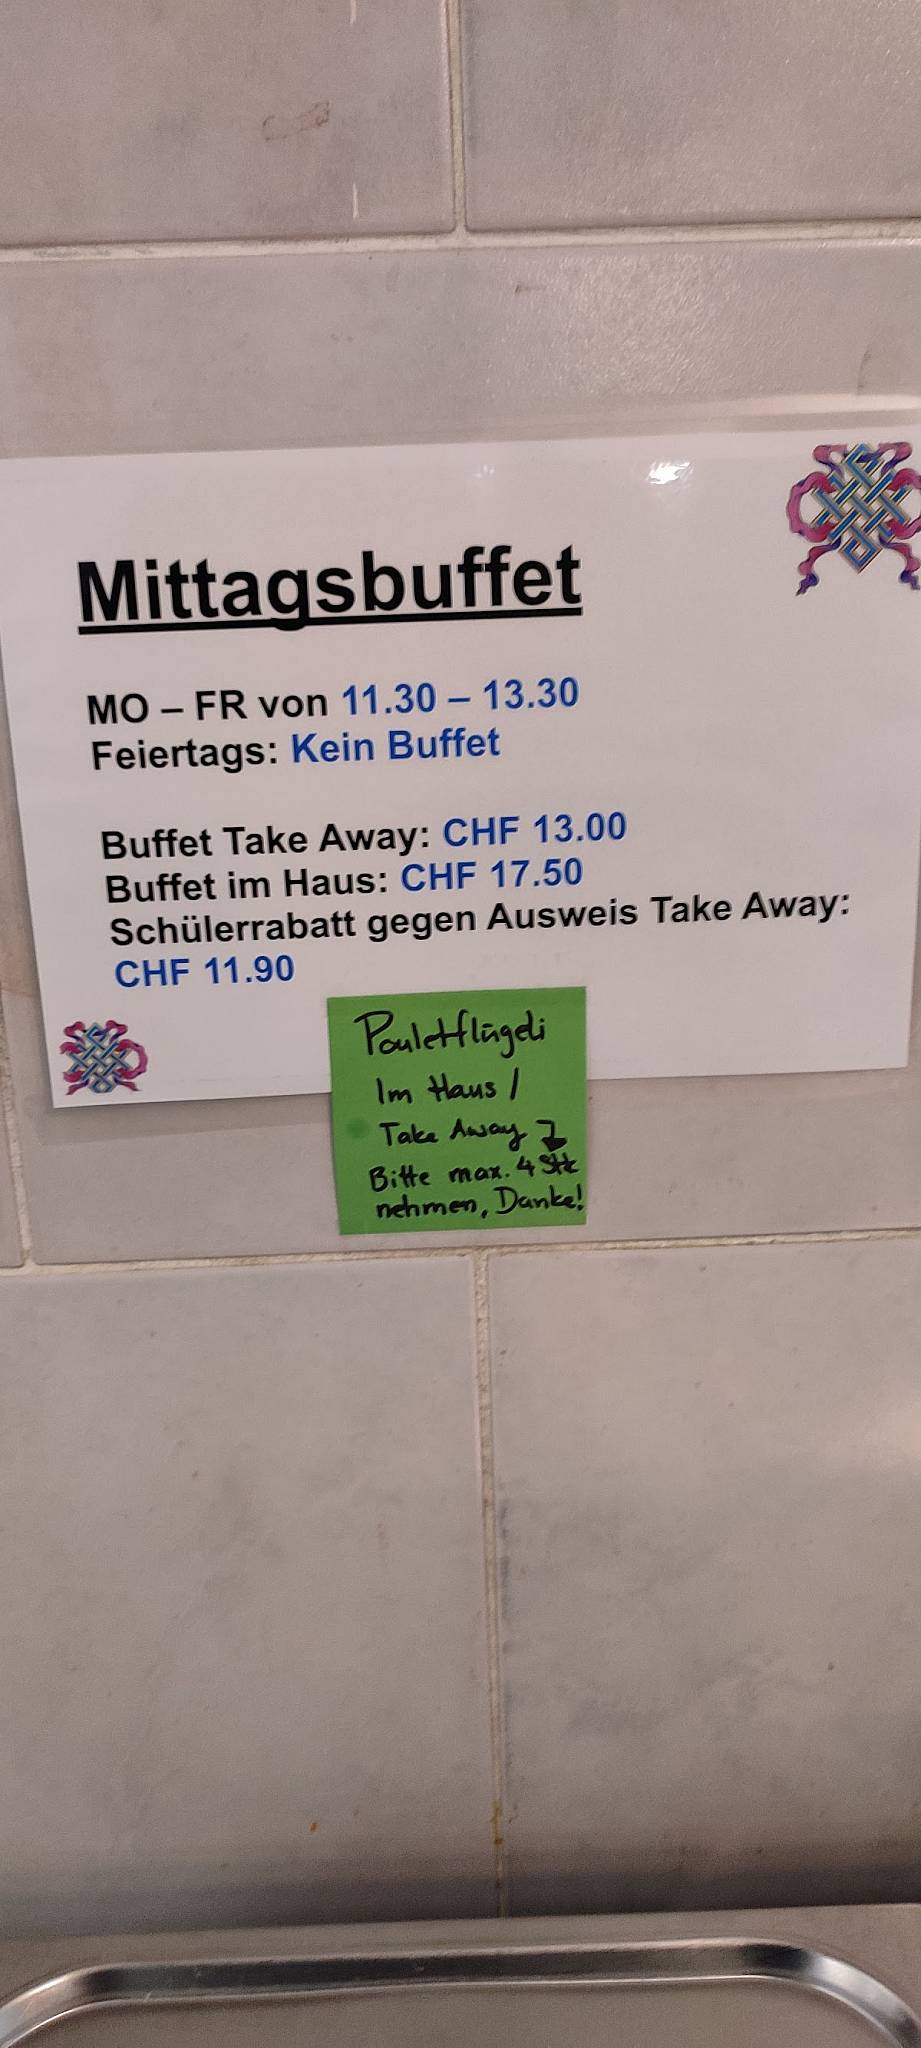 Mittagsbuffet
MO – FR von 11.30 – 13.30
Feiertags: Kein Buffet
Buffet Take Away: CHF 13.00
Buffet im Haus: CHF 17.50
Schülerrabatt gegen Ausweis Take Away:
CHF 11.90
Pouletflügeli
Im Haus /
Take Away
Bitte max. 4 Stk
nehmen, Danke!